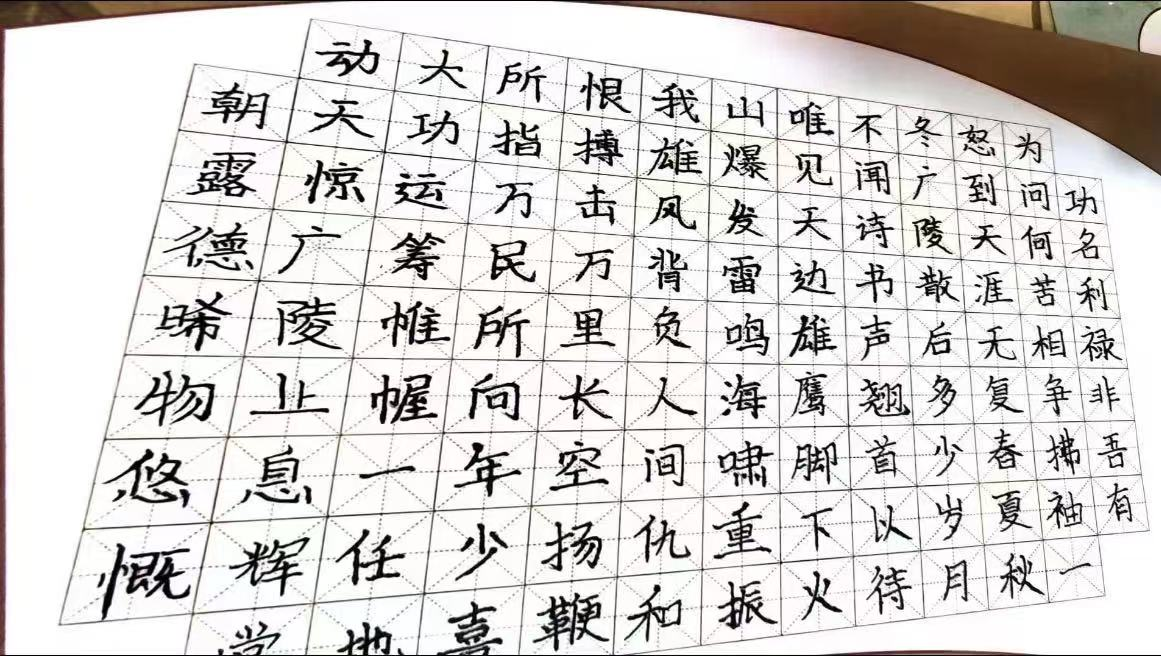 功名利禄非吾有
为问何苦相争拂袖一
怒到天涯无复春夏秋
冬广陵散后多少岁月
不闻诗书声翘首以待
唯见天边雄鹰脚下火
山爆发雷鸣海啸重振
我雄风背负人间仇和
恨搏击万里长空扬鞭
所指万民所向年少喜
大功运筹帷幄一任地
动天惊广陵止息辉
朝露德晞物悠慨